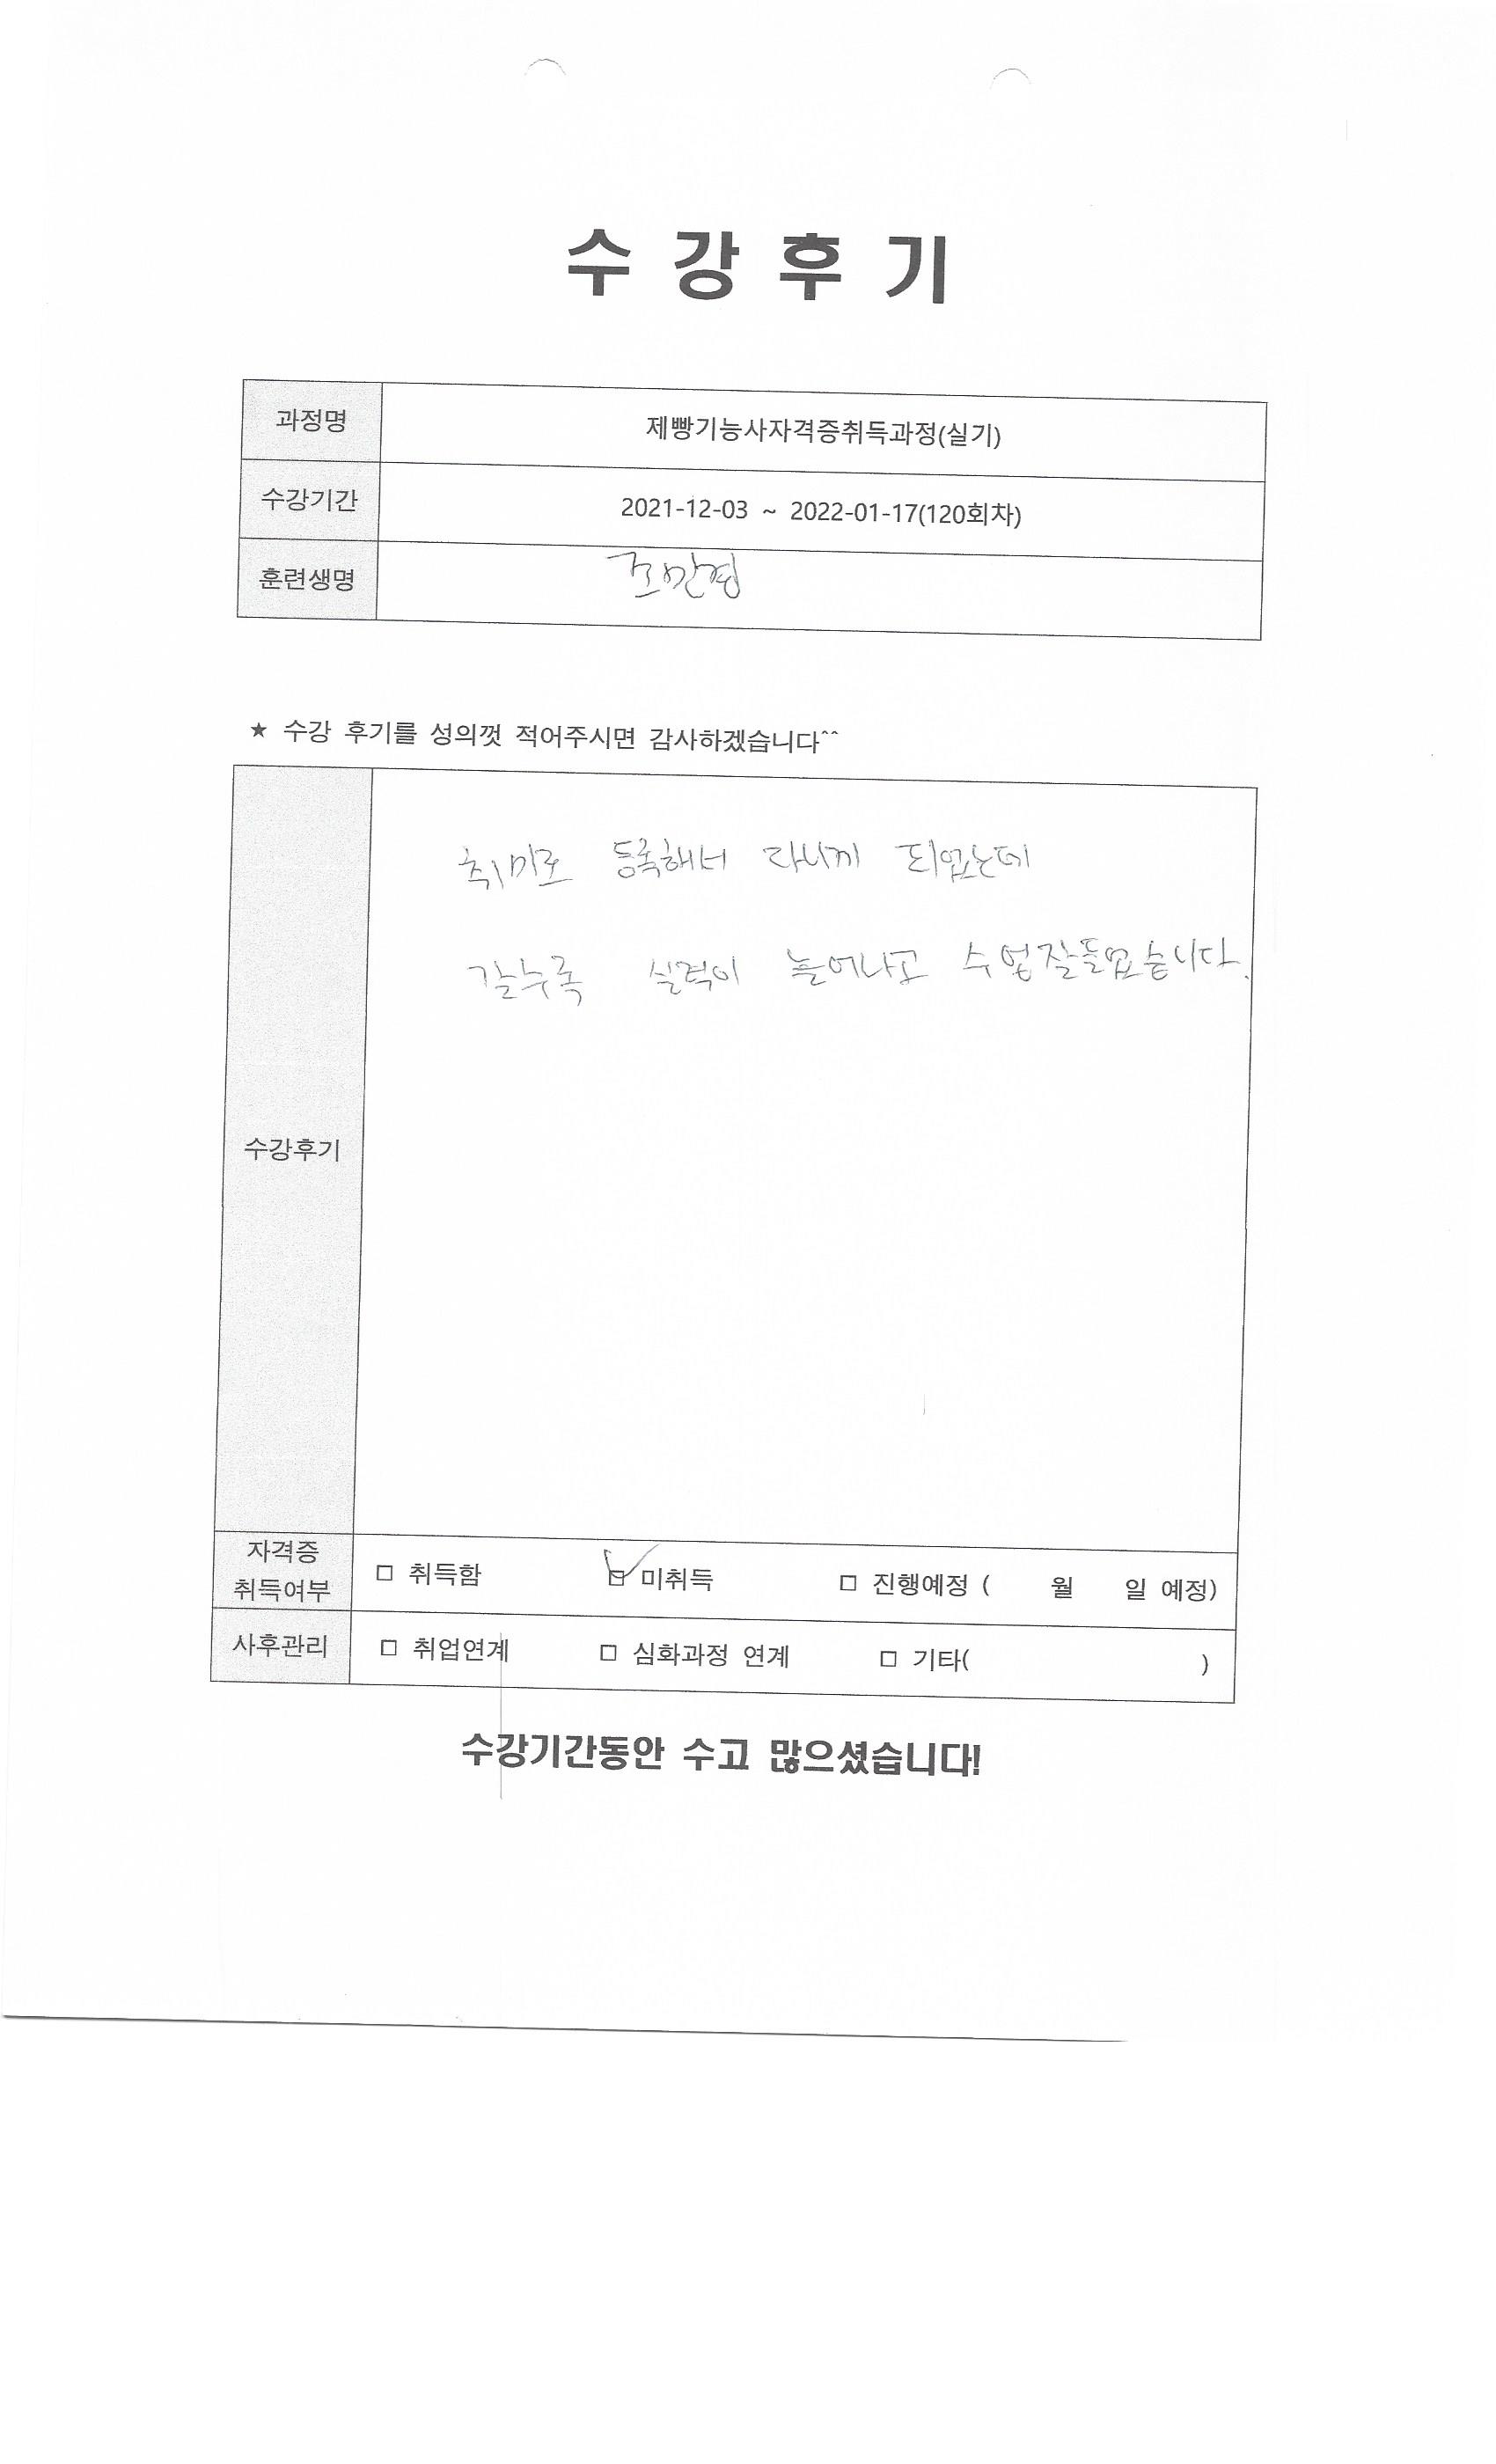 수 강 후 기
과정명 제빵기능사자격증취득과정(실기)
수강기간 2021-12-03 ~ 2022-01-17(120회차)
훈련생명
★ 수강 후기를 성의껏 적어주시면 감사하겠습니다^^
취미로 등록해서 다니께 되었는데
갈수록 실력이 늘어나고 수업잘들었습니다.
수강후기
자격증
취득여부 □ 취득함 □ 미취득 □ 진행예정 ( 월 일 예정)
사후관리 □ 취업연계 □ 심화과정 연계 □ 기타( )
수강기간동안 수고 많으셨습니다!